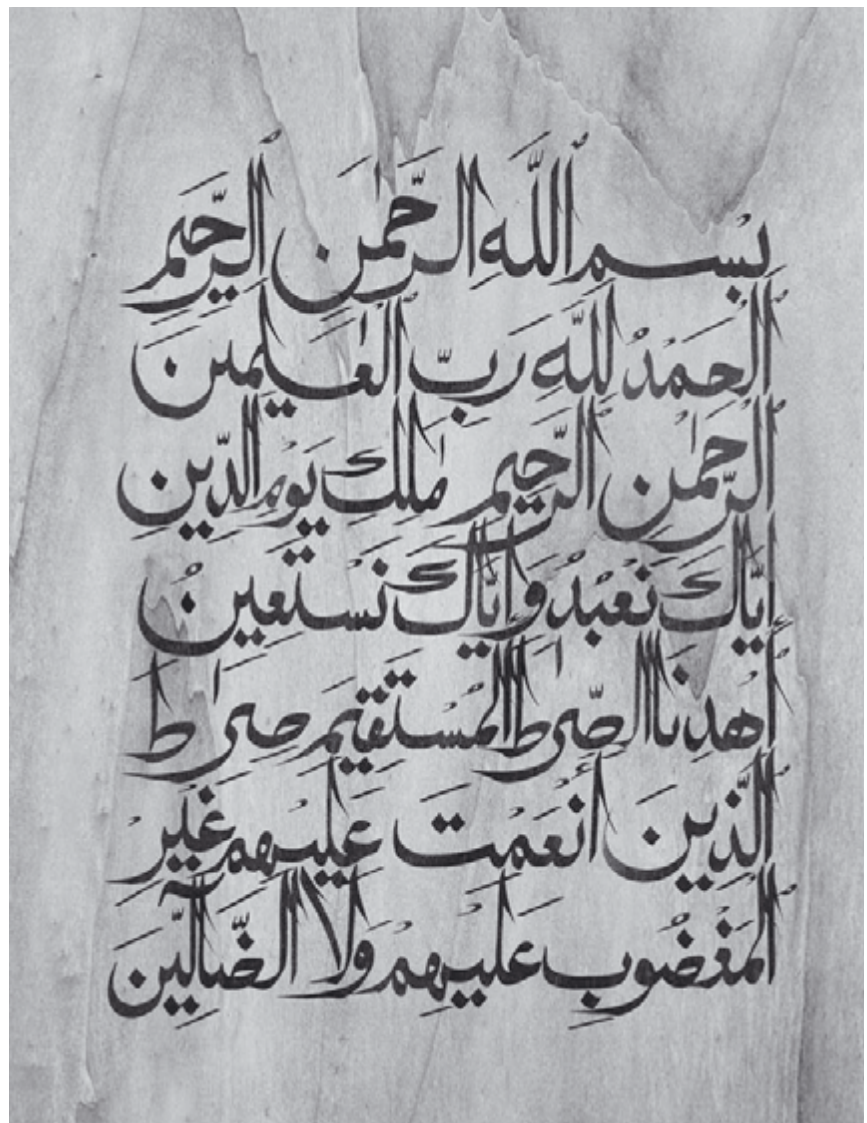 بِسْمِ ٱللَّهِ الرَّحْمَٰنِ ٱلرَّحِيمِ
ٱلْحَمْدُ لِلَّهِ رَبِّ ٱلْعَٰلَمِينَ
ٱلرَّحْمَٰنِ ٱلرَّحِيمِ مَٰلِكِ يَوْمِ الدِّينِ
إِيَّاكَ نَعْبُدُ وَإِيَّاكَ نَسْتَعِينُ
ٱهْدِنَا الصِّرَٰطَ الْمُسْتَقِيمَ صِرَٰطَ
ٱلَّذِينَ أَنْعَمْتَ عَلَيْهِمْ غَيْرِ
ٱلْمَغْضُوبِ عَلَيْهِمْ وَلَا الضَّآلِّينَ